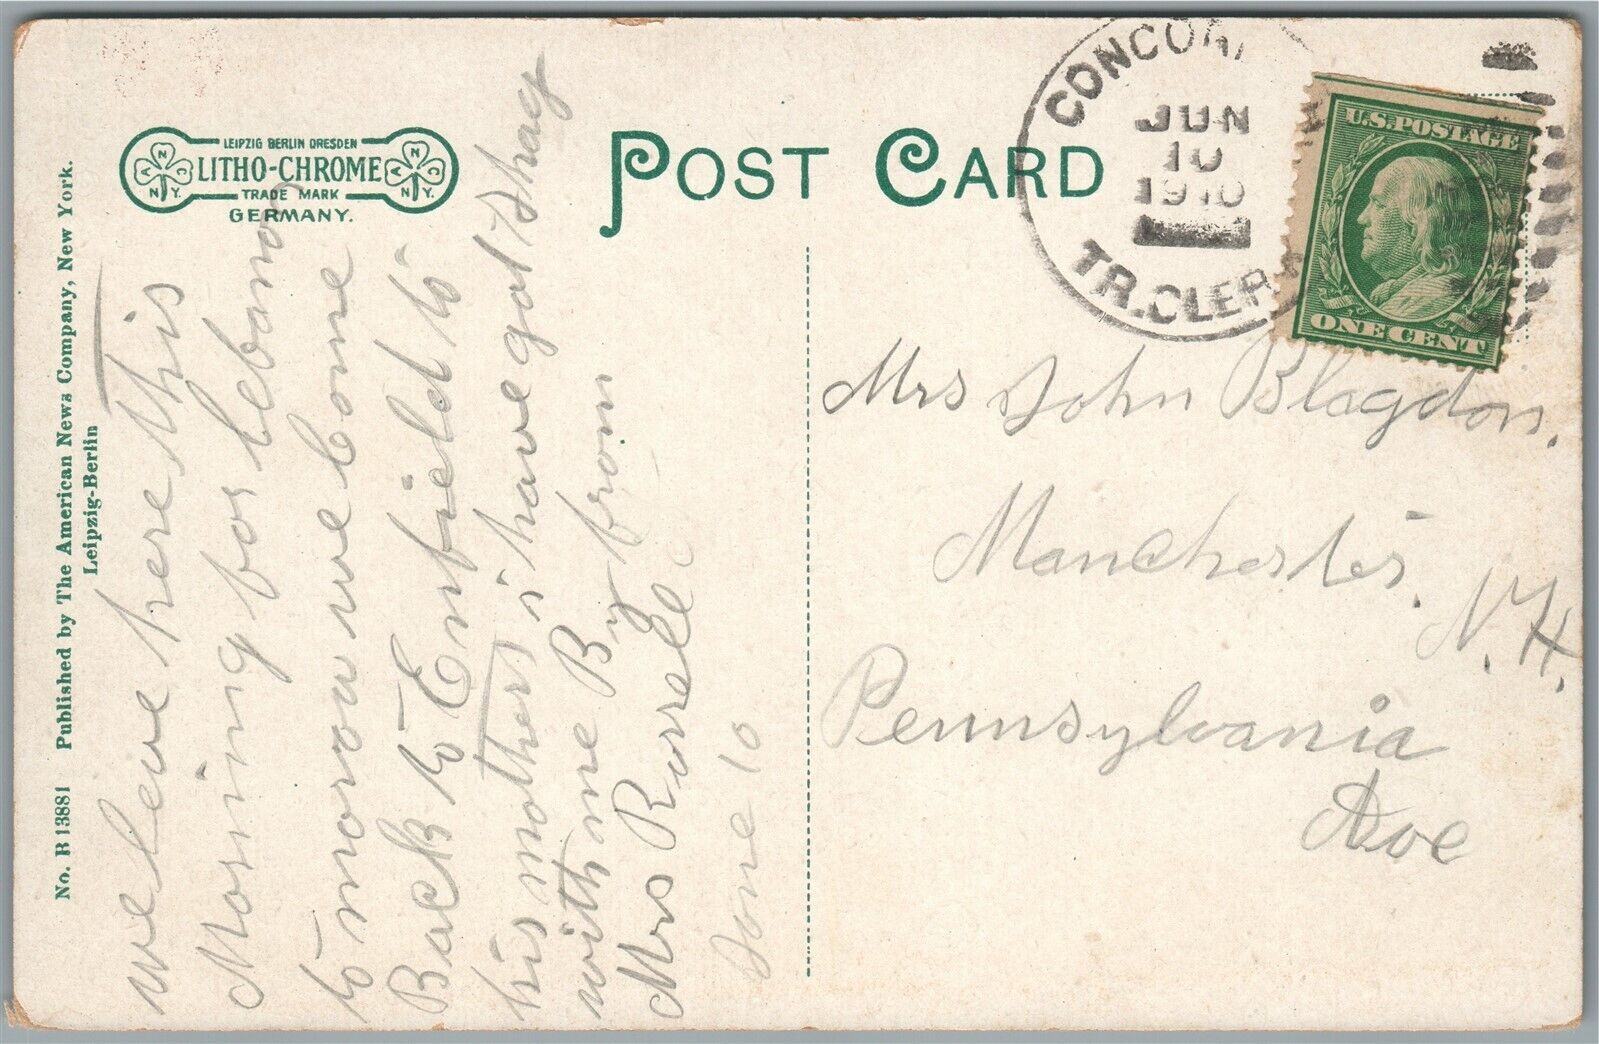 No. B 13881 Published by The American News Company, New York.
Leipzig-Berlin
LEIPZIG BERLIN DRESDEN
LITHO-CHROME
TRADE MARK
GERMANY.
A N C N.Y.
A N C N.Y.
POST CARD
CONCORD
JUN
10
1910
TR. CLERK
U.S. POSTAGE
ONE CENT
we leive here this
Morning for lebanon
to morow we Come
Back to Enfield to
his mothers i have got Shag
with me By from
Mrs Russell
June 10
Mrs John Blagdon.
Manchester.
N.H.
Pennsylvania
Ave